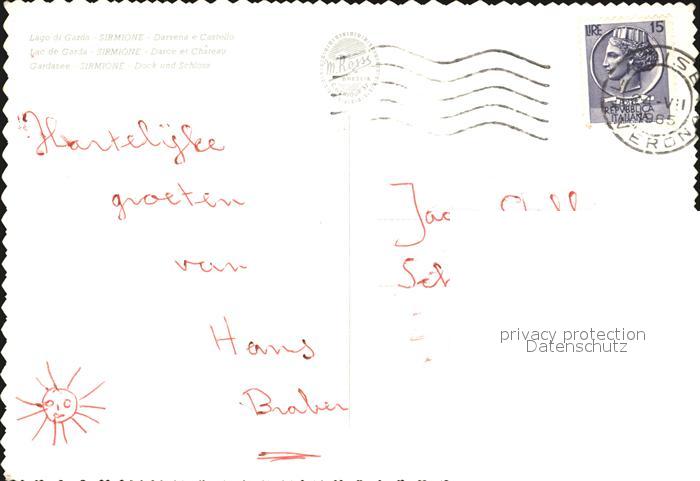 Lago di Garda - SIRMIONE - Darsena e Castello
Lac de Garda - SIRMIONE - Darce et Château
Gardasee - SIRMIONE - Dock und Schloss
BRESCIA
LIRE 15
REPVBBLICA
ITALIANA
VII
1965
VERONA
Hartelijke
groeten
van
Hans
Braber
Jac
privacy protection
Datenschutz